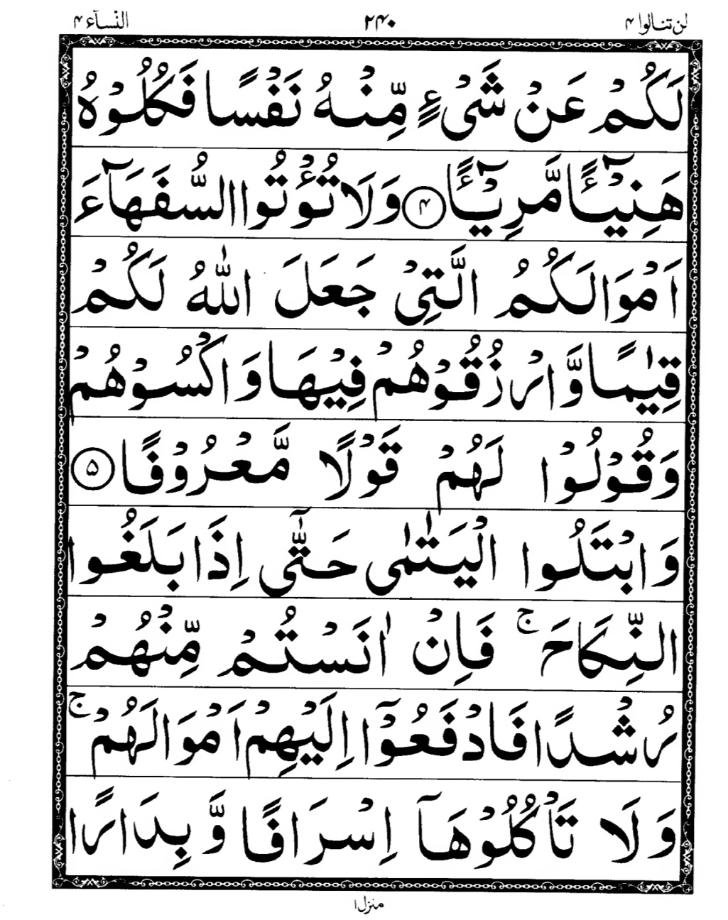 لن تنالوا ۴ ۲۴۰ النسآء ۴
لَكُمْ عَنْ شَیْءٍ مِّنْهُ نَفْسًا فَكُلُوْهُ
هَنِیْٓـًٔا مَّرِیْٓـًٔا ۴ وَلَا تُؤْتُوا السُّفَهَآءَ
اَمْوَالَكُمُ الَّتِیْ جَعَلَ اللّٰهُ لَكُمْ
قِیٰمًا وَّارْزُقُوْهُمْ فِیْهَا وَاكْسُوْهُمْ
وَقُوْلُوْا لَهُمْ قَوْلًا مَّعْرُوْفًا ۵
وَابْتَلُوا الْیَتٰمٰی حَتّٰۤی اِذَا بَلَغُوا
النِّكَاحَ ۚ فَاِنْ اٰنَسْتُمْ مِّنْهُمْ
رُشْدًا فَادْفَعُوْۤا اِلَیْهِمْ اَمْوَالَهُمْ ۚ
وَلَا تَاْكُلُوْهَاۤ اِسْرَافًا وَّبِدَارًا
منزل ۱